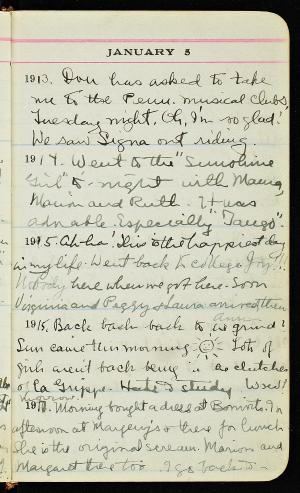 JANUARY 5
1913. Don has asked to take
me to the Penn. musical Clubs,
Tuesday night. Oh, I'm so glad!
We saw Signa out riding.
1914. Went to the "Sunshine
Girl" to-night with Mama,
Marion and Ruth. It was
adorable. Especially "Tango".
1915. Ah-ha! This is the happiest day
in my life. Went back to college Joy!!!
Nobody here when we got here. Soon
Virginia and Peggy & Laura arrived then
Anna
1916. Back back back to the grind!
Sun came this morning Lots of
girls aren't back being in as clutches
of La Grippe. Hate to study Woof!
1917. Morning bought a dress at Bonwits. In
afternoon at Margery's & there for lunch
She is the original scream. Marion and
Margaret there too I go back to-
morrow.